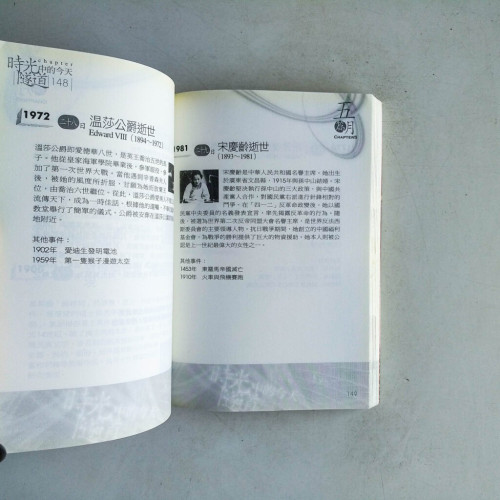 chapter
時光中的今天
隧道 148
1972 二十八日 溫莎公爵逝世
Edward VIII（1894～1972）
溫莎公爵即愛德華八世，是英王喬治五世的長
子。他從皇家海軍學院畢業後，
加了第一次世界大戰。當他遇到辛普森夫人
後，被她的風度所折服，甘願為她放棄王
位，由喬治六世繼位，從此，溫莎公爵
流傳天下，成為一時佳話。根據他的遺囑，
教堂舉行了簡單的儀式，公爵被安葬在溫莎
地附近。
其他事件：
1902年　愛迪生發明電池
1959年　第一隻猴子漫遊太空
五月
CHAPTER5
1981 二十九日 宋慶齡逝世
（1893～1981）
宋慶齡是中華人民共和國名譽主席。她出生
於廣東省文昌縣，1915年與孫中山結婚。宋
慶齡堅決執行孫中山的三大政策，與中國共
產黨人合作，對國民黨右派進行針鋒相對的
鬥爭。在「四一二」反革命政變後，她以國
民黨中央委員的名義發表宣言，率先揭露反革命的行為。隨
後，被選為世界第二次反帝同盟大會名譽主席，是世界反法西
斯委員會的主要領導人物。抗日戰爭期間，她創立的中國福利
基金會，為戰爭的勝利提供了巨大的物資援助。她本人則被公
認是上一世紀最偉大的女性之一。
其他事件：
1453年　東羅馬帝國滅亡
1910年　火車與飛機賽跑
149